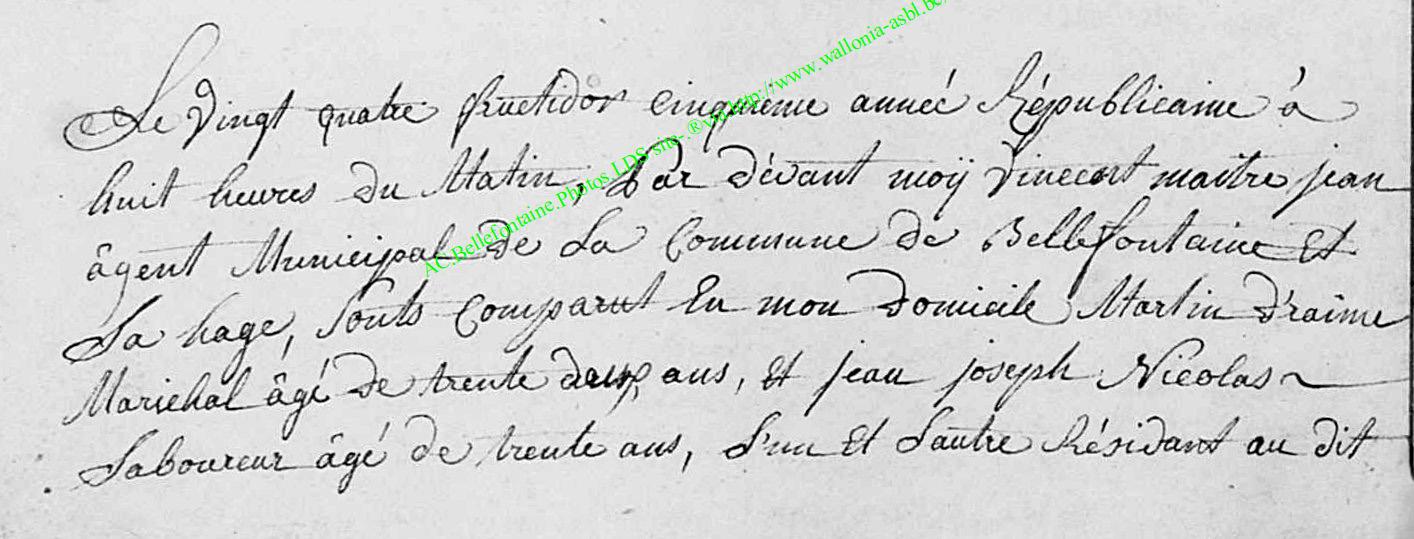 Le Vingt quatre fructidor cinquieme année Républicaine à
huit heures du Matin, Par dévant moÿ Vincent maitre jean
âgent Municipal de La Commune de Bellefontaine Et
La hage, Sonts Comparut En mon Domicile Martin D'raime
Maréchal âgé de trente deux ans, Et jean joseph Nicolas
Laboureur âgé de trente ans, L'un Et Lautre Résidant au dit
AC.Bellefontaine.Photos.LDS-site-.®via.http://www.wallonia-asbl.be/